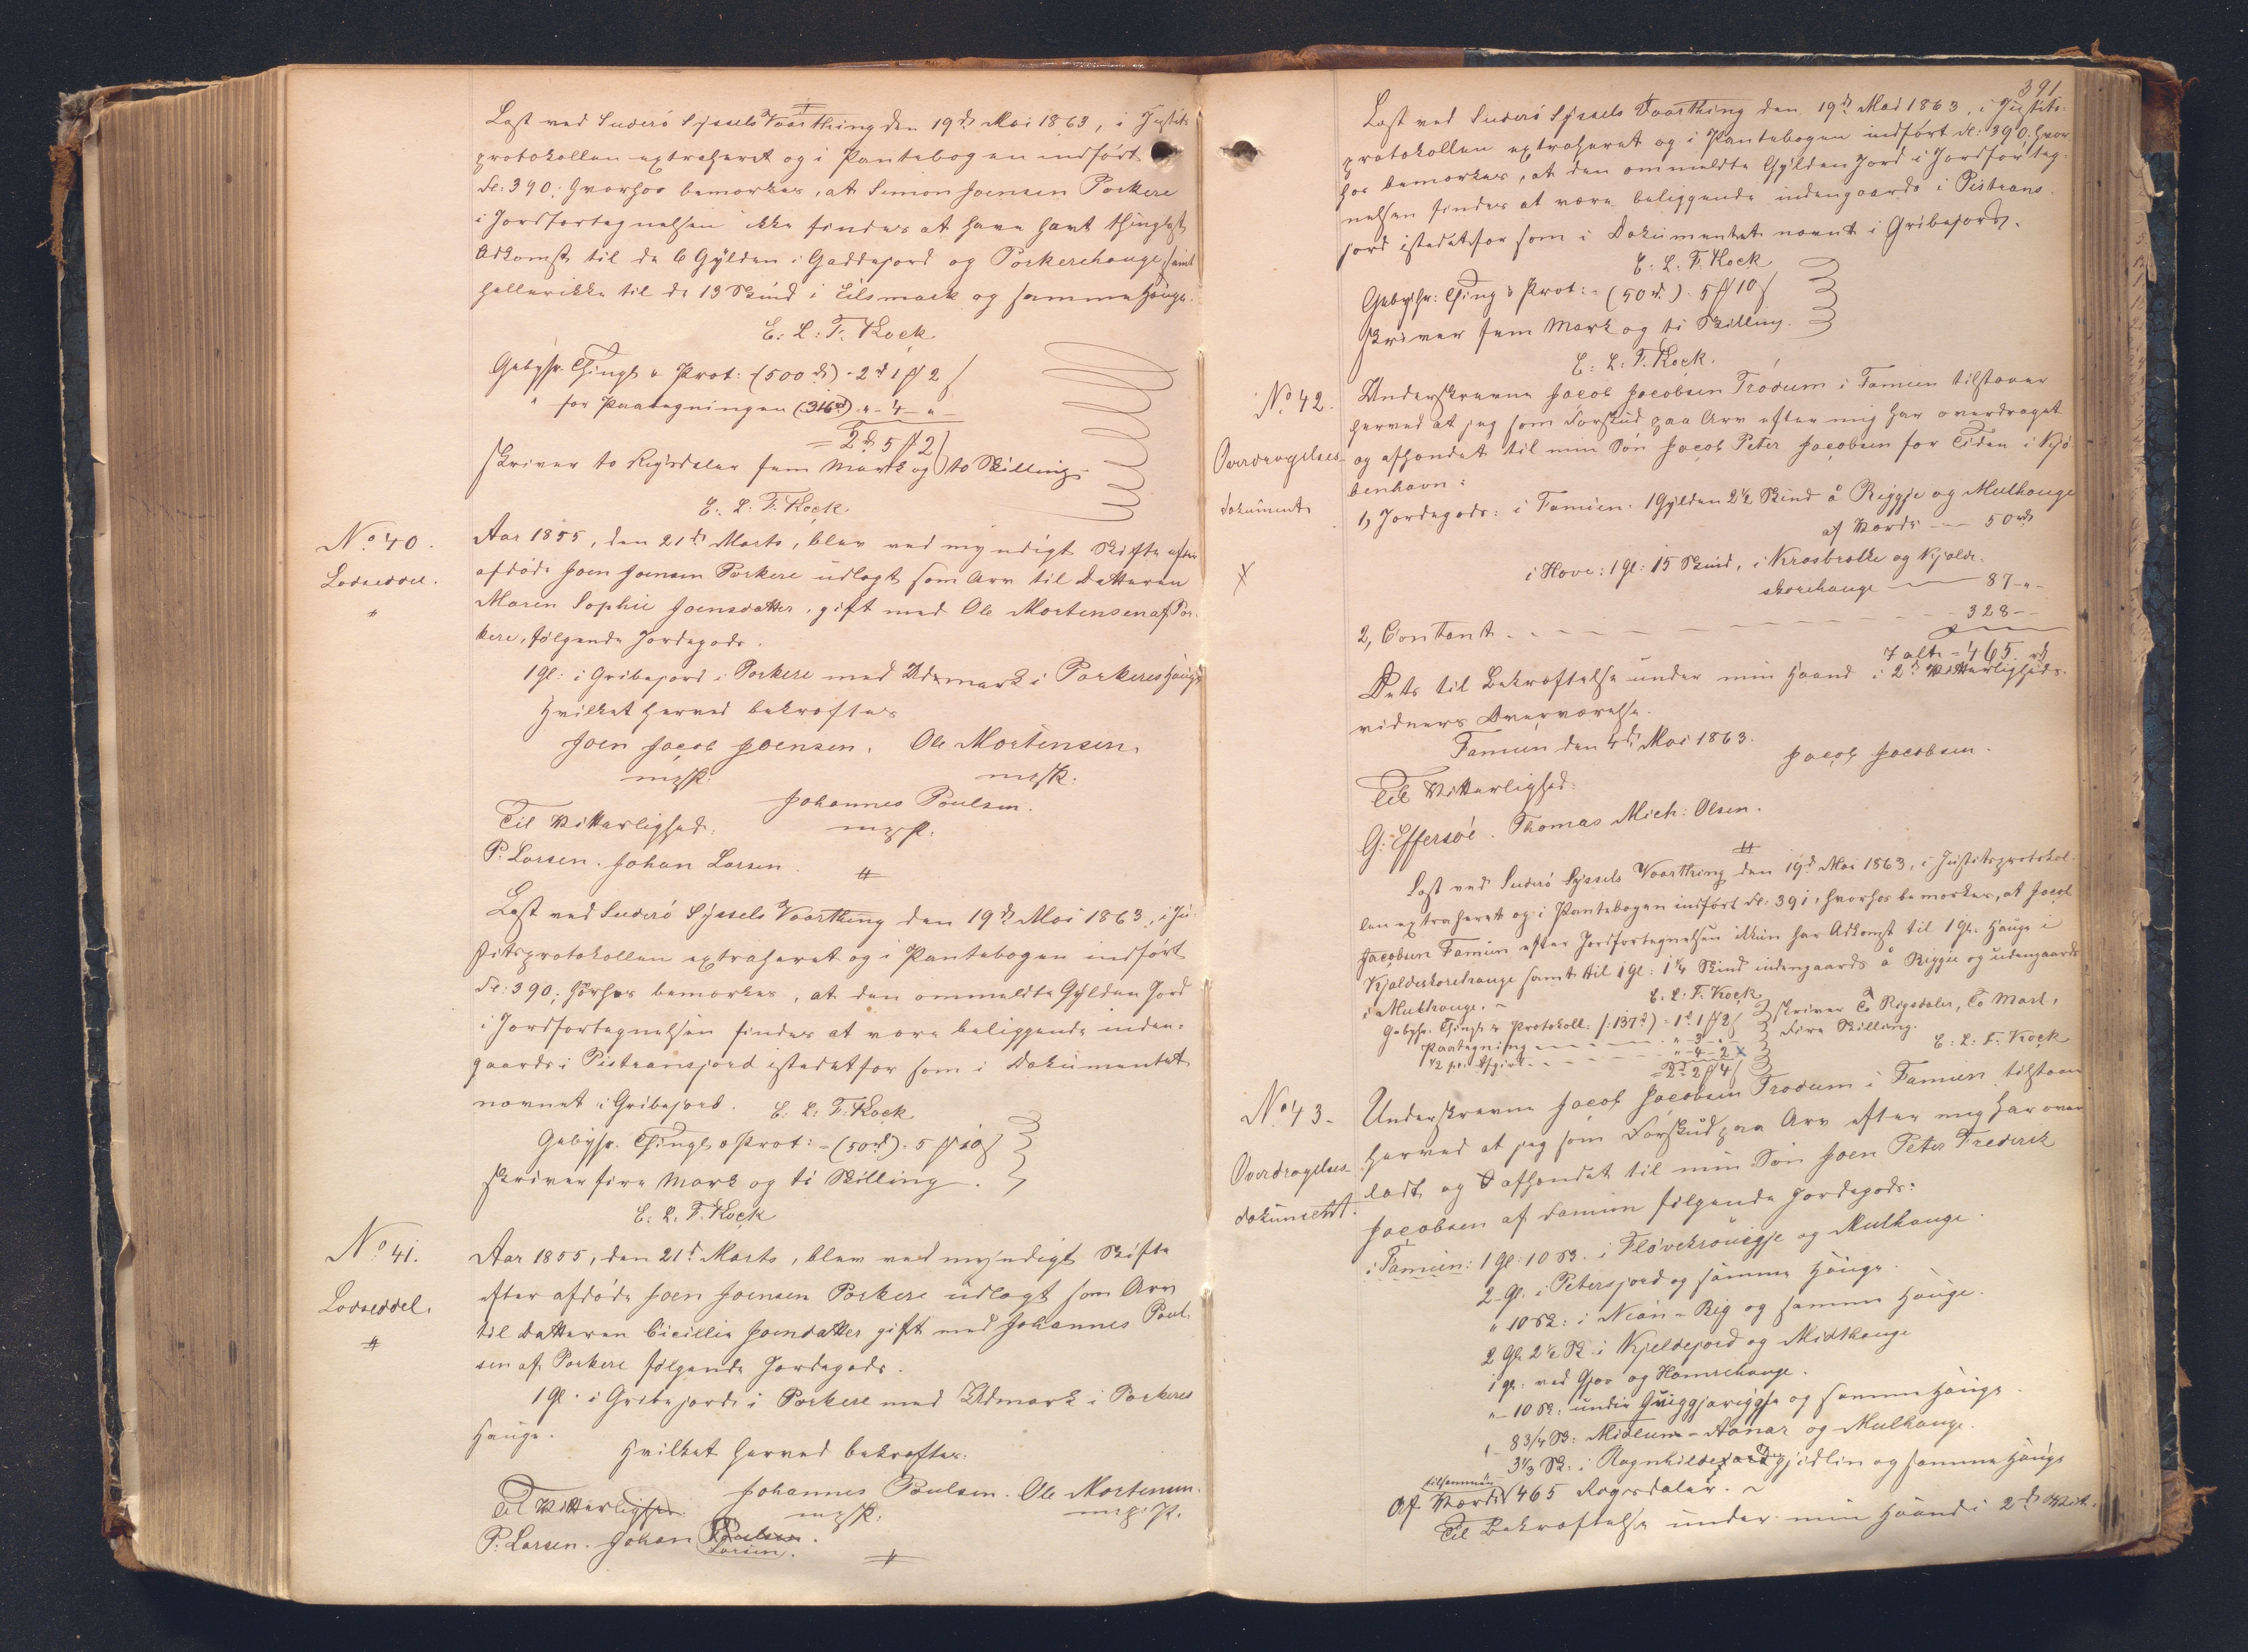 Læst ved Suderö Syssels Vaarthing den 19de Mai 1863, i Justits-
protokollen extraheret og i Pantebogen indført
Fol: 390; hvorhos bemærkes, at Simon Joensen Porkere
i Jordfortegnelsen ikke findes at have havt thinglæst
Adkomst til de 6 Gylden i Gaddejord og Porkerehauge, samt
hellerikke til de 13 Skind i Eilsmark og samme Hauge.
E: L: F: Kock
Gebyhr. Thingl & Prot: (500 rd) - 2 rd 1 ꝑ 2 ß
" for Paategningen (316 rd) " - 4 - " -
= 2 rd 5 ꝑ 2 ß
skriver to Rigsdaler fem Mark og to Skilling.
E. L. F. Kock.
No 40.
Lodseddel.
Aar 1855, den 21de Marts, blev ved myndigt Skifte efter
afdøde Joen Joensen Porkere udlagt som Arv til Datteren
Maren Sophie Joensdatter, gift med Ole Mortensen af Por-
kere, følgende Jordegods.
1 Gl: i Gribajord i Porkere med Udmark i Porkeres Hauge
Hvilket herved bekræftes
Joen Jacob Joensen. Ole Mortensen.
mpR: mpR:
Til Vitterlighed: Johannes Poulsen.
mpR:
P. Larsen. Johan Larsen.
Læst ved Suderö Syssels Vaarthing den 19de Mai 1863, i Ju-
stitsprotokollen extraheret og i Pantebogen indført
Fol: 390; hvorhos bemærkes, at den ommeldte Gylden Jord
i Jordfortegnelsen findes at være beliggende inden-
gaards i Pistransjord istedetfor som i Dokumentet
nævnet i Gribejord. E: L: F. Kock
Gebyhr. Thingl & Prot: - (50 rd) - 5 ꝑ 10 ß
skriver fire Mark og ti Skilling.
E. L. F. Kock
No 41.
Lodseddel.
Aar 1855, den 21de Marts, blev ved myndigt Skifte
efter afdøde Joen Joensen Porkere udlagt som Arv
til Datteren Cicillia Joensdatter gift med Johannes Poul-
sen af Porkere følgende Jordegods.
1 Gl. i Gribajord i Porkere med Udmark i Porkeres
Hauge. Hvilket herved bekræftes.
Til Vitterlighed: Johannes Poulsen. Ole Mortensen.
mpR: mpR.
P. Larsen. Johan Poulsen.
Larsen.
391
Læst ved Suderö Syssels Vaarthing den 19de Mai 1863, i Justits-
protokollen extraheret og i Pantebogen indført Fol: 390; hvor-
hos bemærkes, at den ommeldte Gylden Jord i Jordforteg-
nelsen findes at være beliggende indengaards i Pistrans-
jord istedetfor som i Dokumentet nævnt i Gribejord.
E: L: F. Kock
Gebyhr: Thing & Prot: - (50 rd.) - 5 ꝑ 10 ß
skriver fem Mark og ti Skilling.
E: L: F. Kock.
No 42.
Overdragelses-
dokument
Underskrevne Jacob Jacobsen Trödum i Famien tilstaaer
herved at jeg som Forskud paa Arv efter mig har overdraget
og afhændet til min Søn Jacob Peter Jacobsen for Tiden i Kjö-
benhavn:
1, Jordegods: i Famien. 1 Gylden 2½ Skind å Reggje og Mulhauge
af Værdi — 50 rd
i Hove: 1 Gl: 15 Skind, i Krosbrekke og Kjelde-
skorehauge — 87 - " -
2, Contant - - - 328 - -
I alt = 465 rd
Dets til Bekræftelse under min Haand i 2de Vitterligheds-
vidners Overværelse.
Famien den 4de Mai 1863.
Jacob Jacobsen.
Til Vitterlighed:
G. Effersöe. Thomas Mich: Olsen.
Læst ved Suderö Syssels Vaarthing den 19de Mai 1863, i Justitsprotokol-
len extraheret og i Pantebogen indført Fol: 391, hvorhos bemærkes, at Jacob
Jacobsen Famien efter Jordfortegnelsen ikkun har Adkomst til 1 Gl. Hauge i
Kjaldeskorehauge samt til 1 Gl: 1¼ Skind indengaards å Reggje og udengaards
i Mulhauge. E. L: F. Kock
Gebyhr. Thingl & Protokoll: (137 rd) = 1 rd 1 ꝑ 2 ß skriver To Rigsdaler, To Mark,
Paategning - - - " - 3 - " fire Skilling.
½ pr. Afgift - - - " - 4 - 2 E: L: F. Kock
= 2 rd 2 ꝑ 4 ß
No 43.
Overdragelses-
dokument.
Underskrevne Jacob Jacobsen Trödum i Famien tilstaaer
herved at jeg som Forskud paa Arv efter mig har over-
ladt og afhændet til min Søn Joen Peter Frederik
Jacobsen af Famien følgende Jordegods:
i Famien: 1 Gl: 10 Sk. i Flövekrouigje og Mulhauge.
2 - Gl. i Petersjord og samme Hauge.
" 10 Sk: i Nean-Rig og samme Hauge.
2 Gl. 2½ Sk i Kjeldejord og Midthauge
1 Gl. ved Gjov og Homrehauge.
" - 10 Sk: undir Gniggjareggje og samme Hauge.
" - 8 3/4 Sk: Midlum-Aanar og Mulhauge.
3⅓ Sk: i Ragnhildejordgjidlin og samme Hauge
tilsammen
Af Værdi 465 Rigsdaler.
Til Bekræftelse under min Haand i 2de Vit-